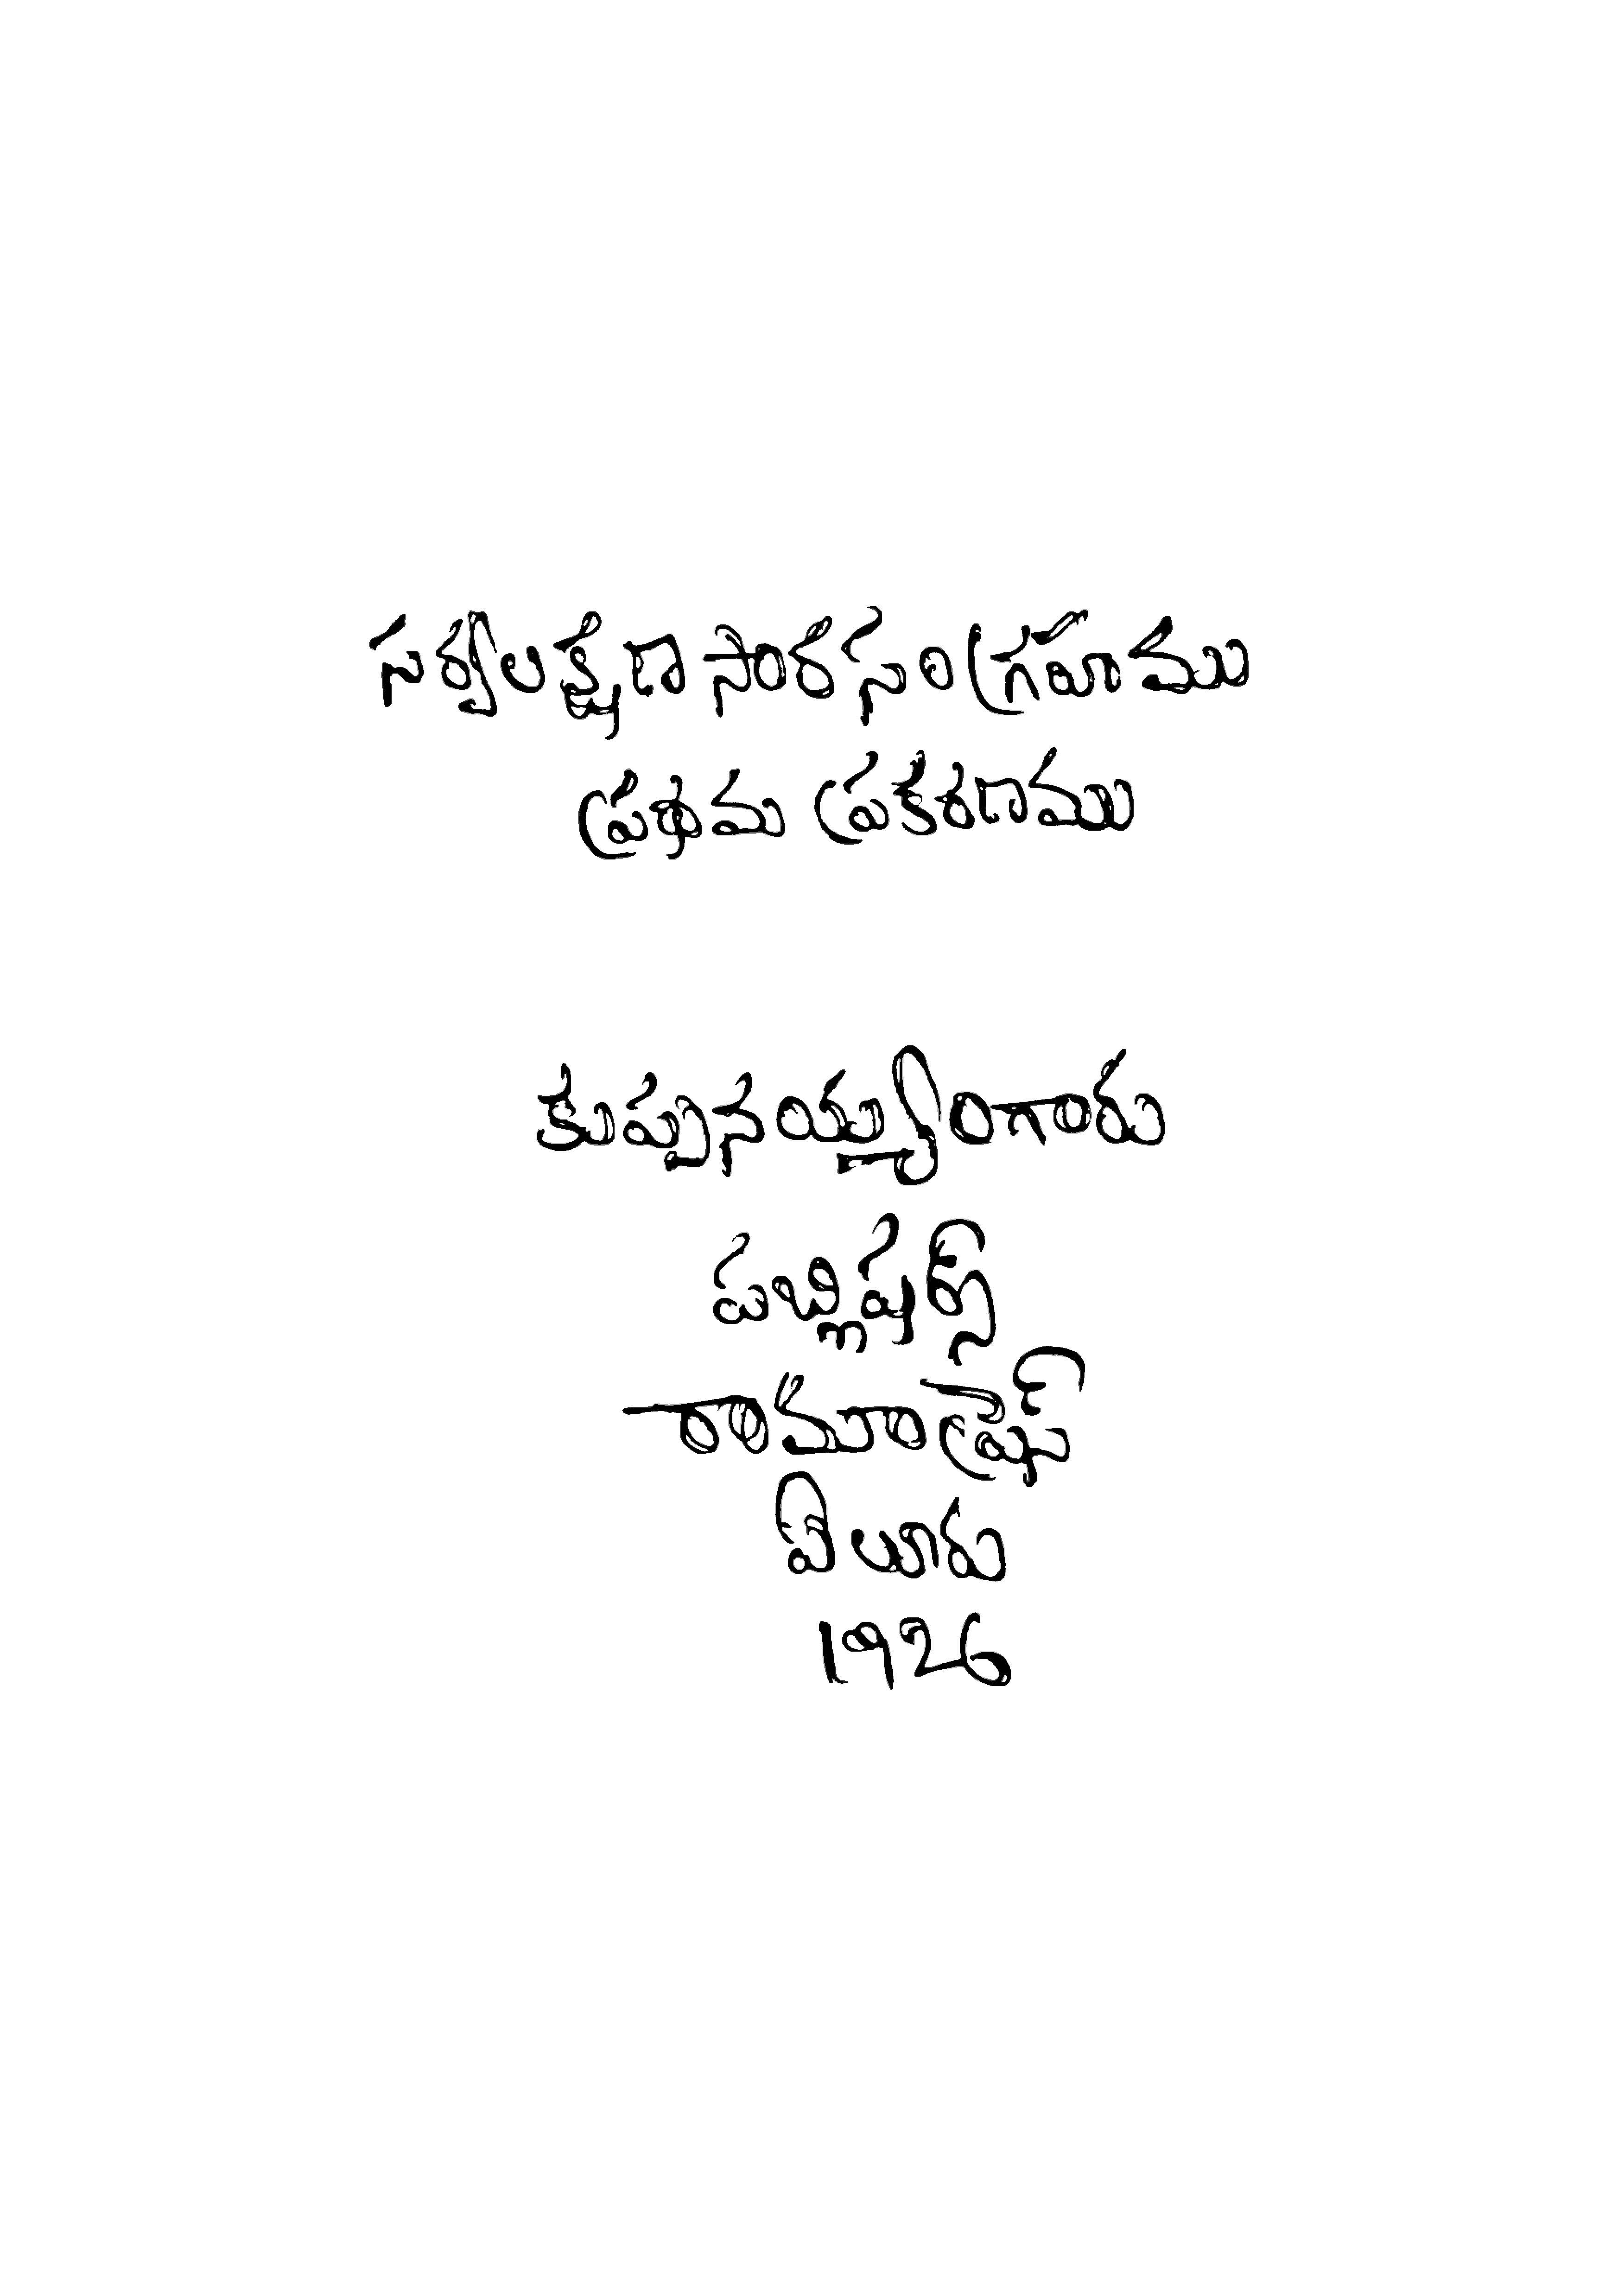 సర్వలక్షణ సారసంగ్రహము
ప్రథమ ప్రకరణము
కుప్పనయ్యంగారు
పబ్లిషర్స్
రామా ప్రెస్
ఏలూరు
1926